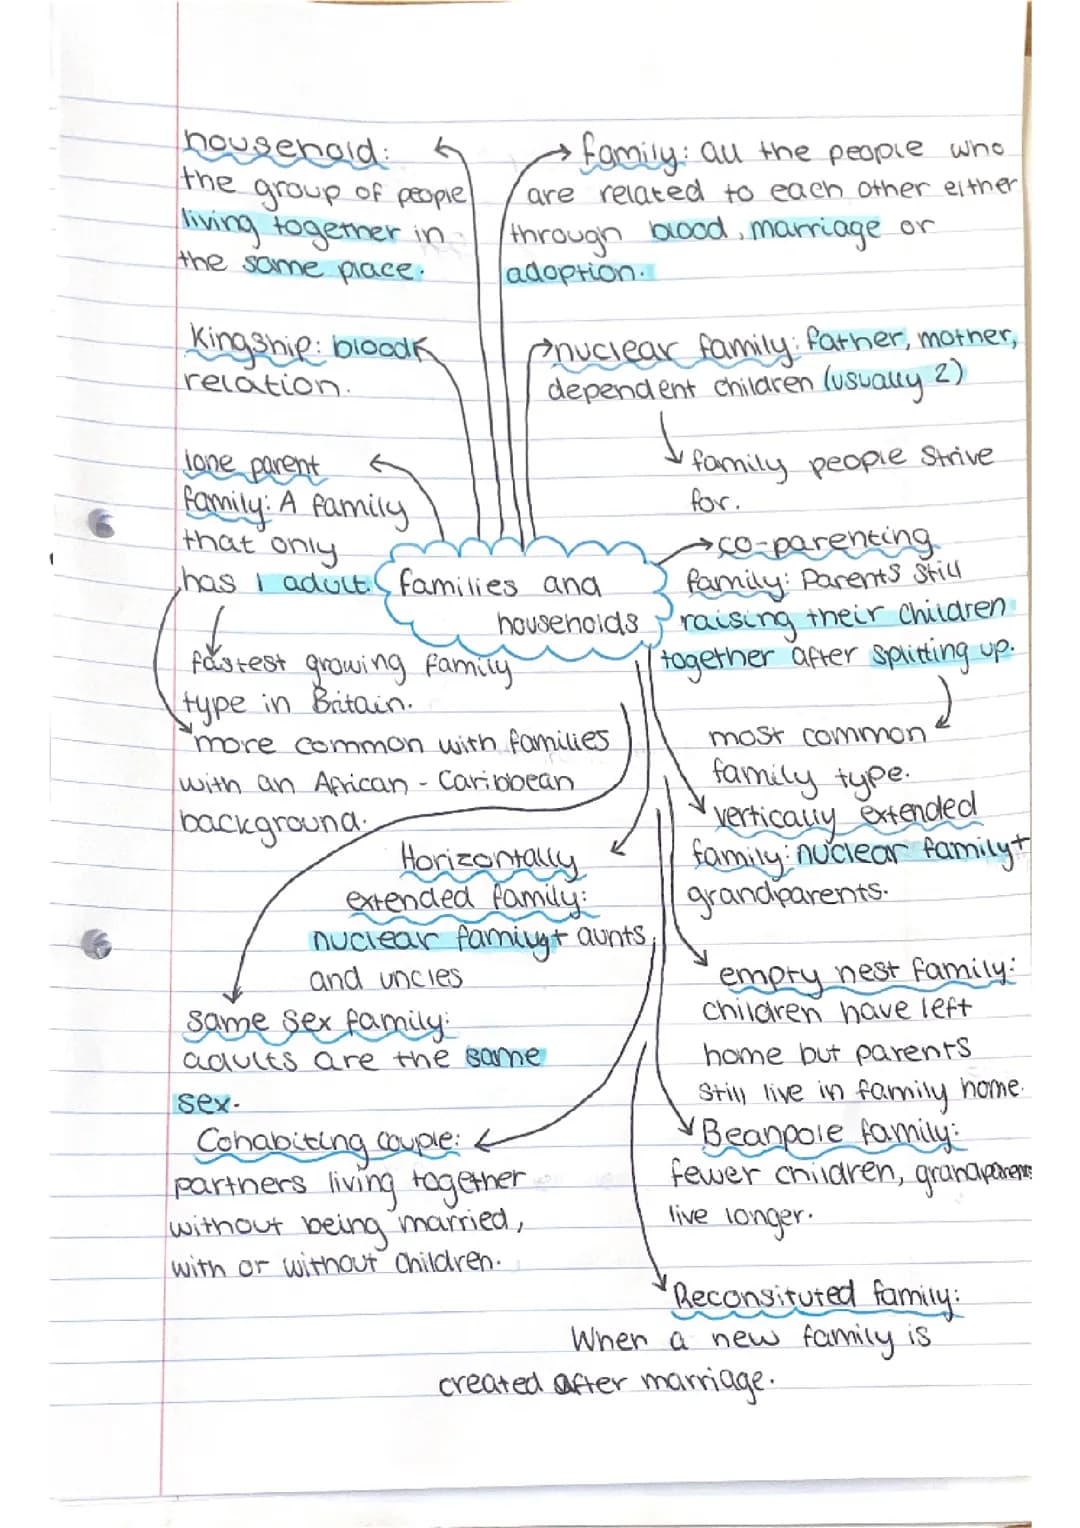 household:
the group of people
living together in
the same place.
family: all the people who
are related to each other either
through blood, marriage or
adoption.
Kingship: blood
relation.
nuclear family: father, mother,
dependent children (usually 2)
family people strive
for.
lone parent
family: A family
that only
has 1 adult.
fastest growing family
type in Britain.
more common with families
with an African - Caribbean
background.
families and
households
co-parenting
family: Parents still
raising their children
together after splitting up.
most common
family type.
vertically extended
family: nuclear family +
grandparents.
Horizontally
extended family:
nuclear family + aunts
and uncles
empty nest family:
children have left
home but parents
still live in family home.
same sex family:
adults are the same
sex.
Cohabiting couple:
partners living together
without being married,
with or without children.
Beanpole family:
fewer children, grandparents
live longer.
Reconsituted family:
When a new family is
created after marriage.